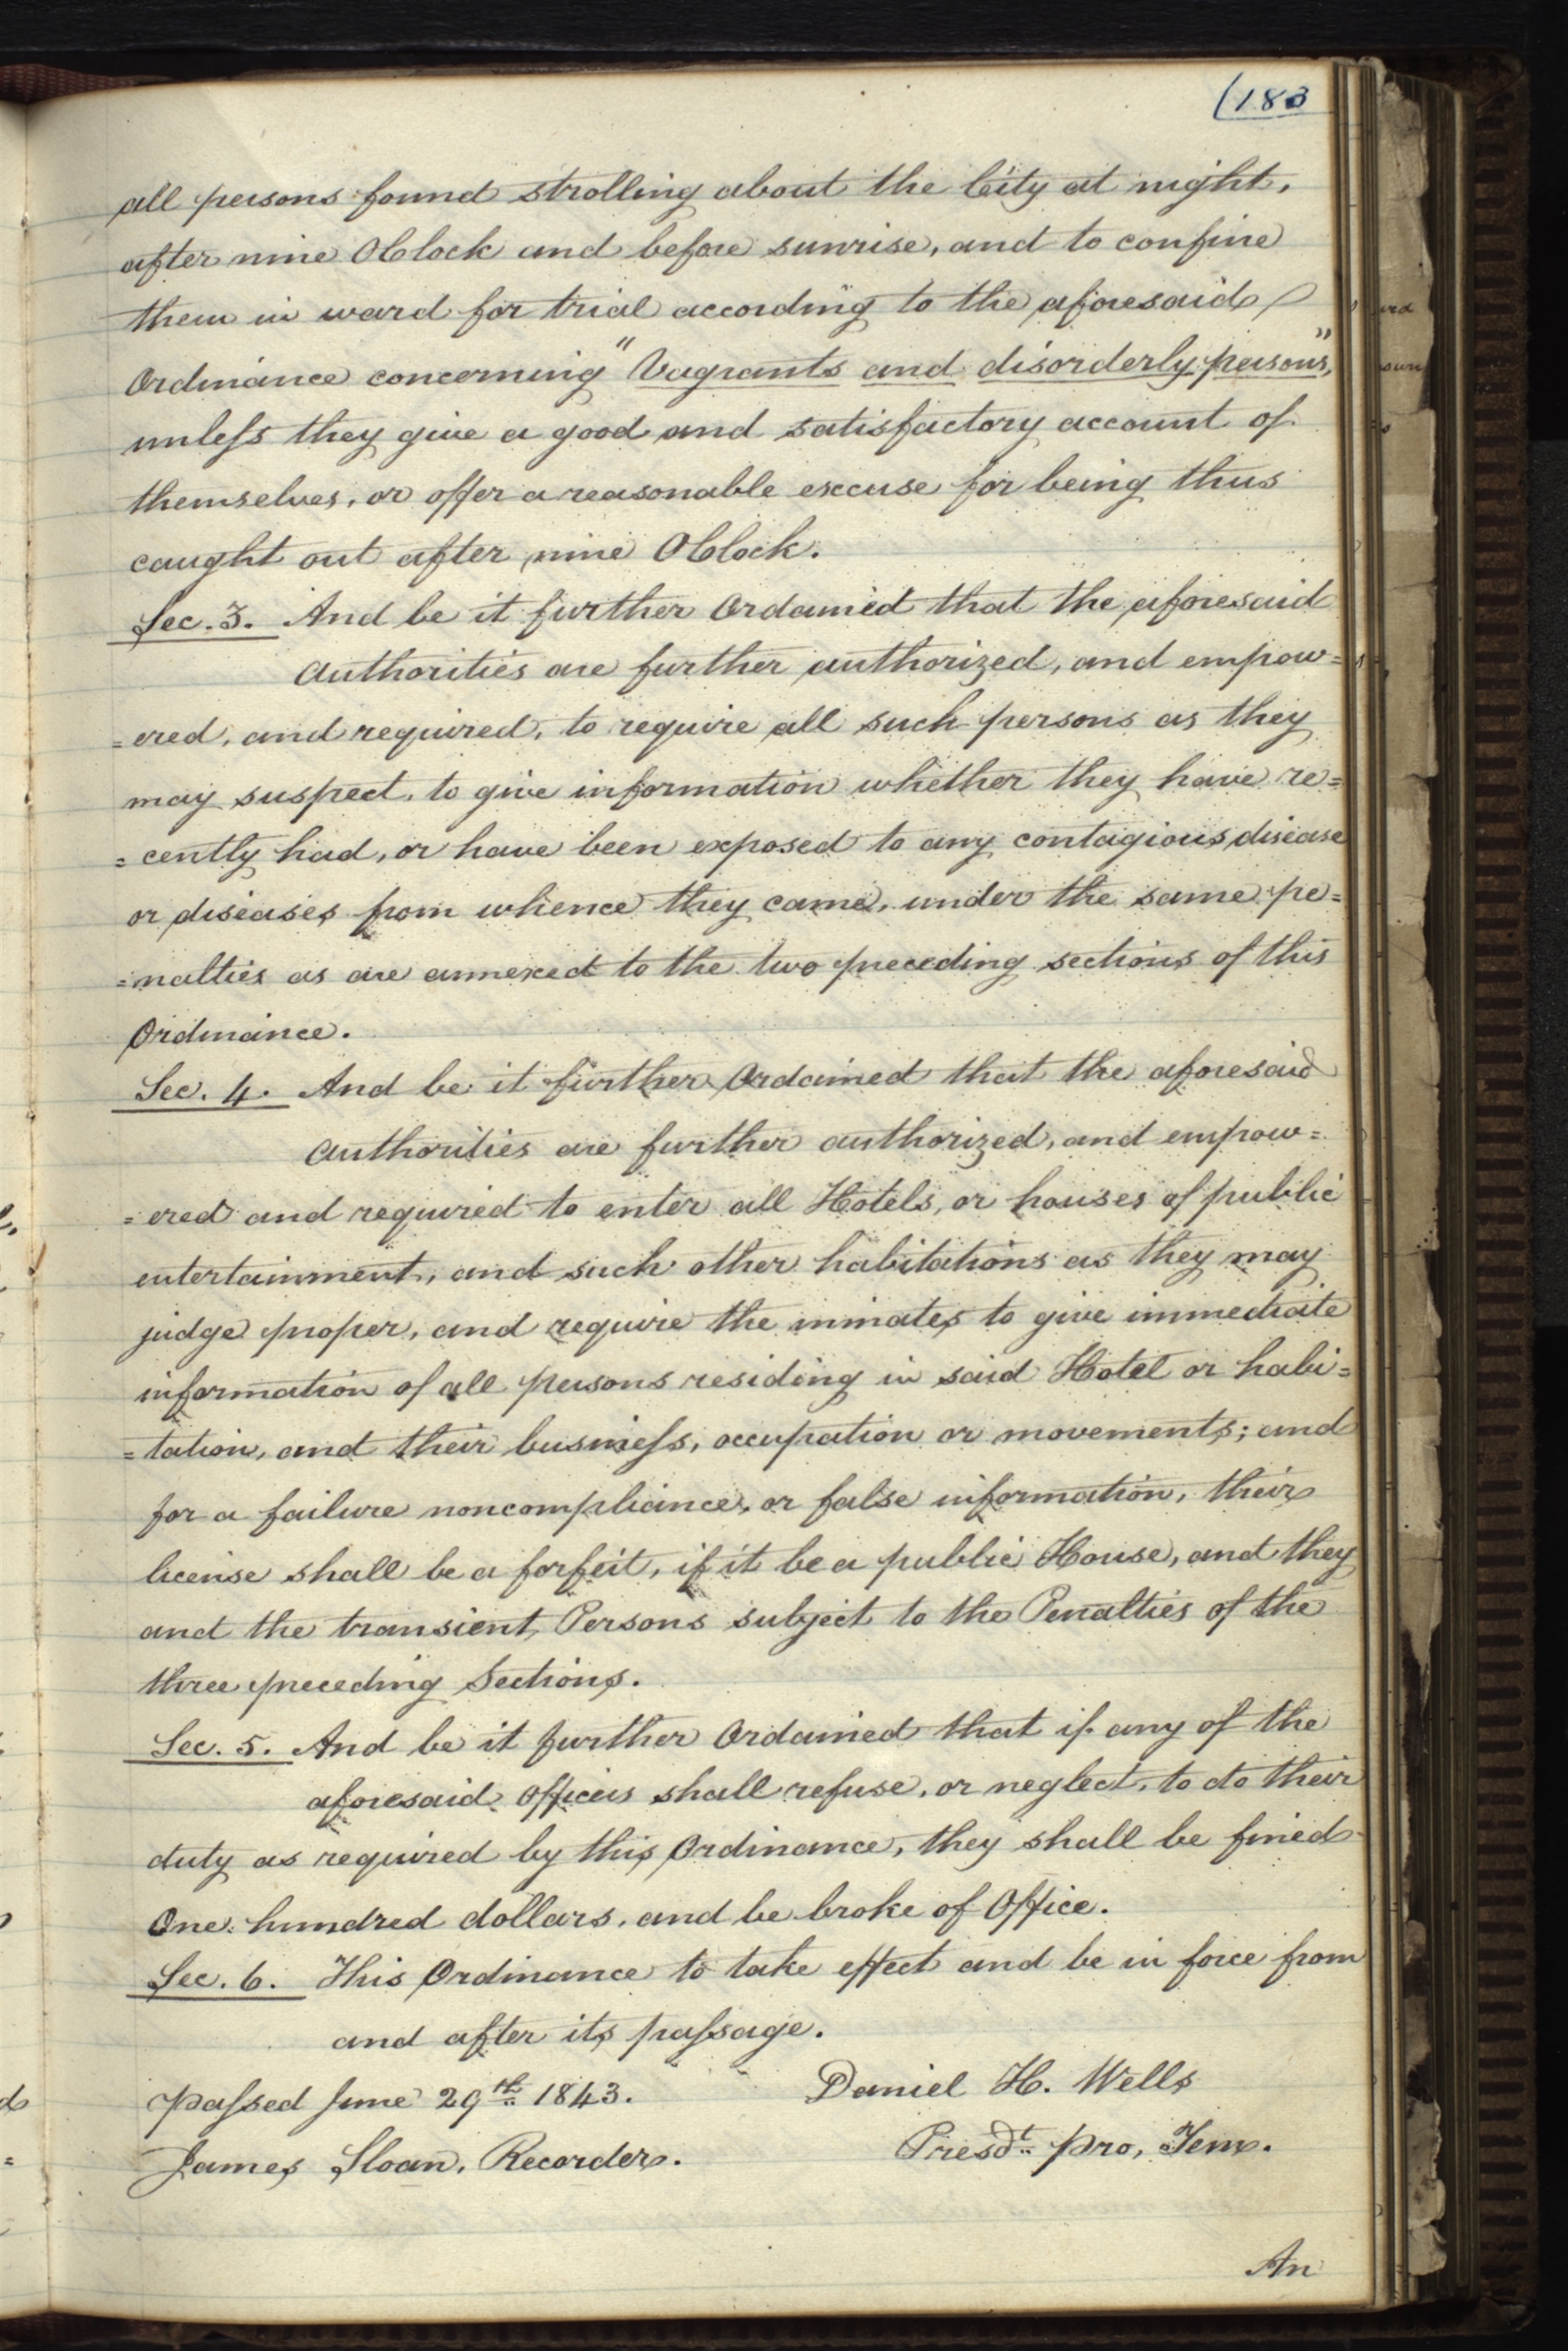 (183
all persons found strolling about the City at night,
after nine OClock and before sunrise, and to confine
them in ward for trial according to the aforesaid
Ordinance concerning "Vagrants and disorderly persons",
unless they give a good and satisfactory account of
themselves, or offer a reasonable excuse for being thus
caught out after nine OClock.
Sec. 3. And be it further Ordained that the aforesaid
authorities are further authorized, and empow=
=ered, and required, to require all such persons as they
may suspect, to give information whether they have re=
=cently had, or have been exposed to any contagious disease
or diseases from whence they came, under the same pe=
=nalties as are annexed to the two preceding sections of this
Ordinance.
Sec. 4. And be it further Ordained that the aforesaid
authorities are further authorized, and empow=
=ered and required to enter all Hotels, or houses of public
entertainment, and such other habitations as they may
judge proper, and require the inmates to give immediate
information of all persons residing in said Hotel or habi=
=tation, and their business, occupation or movements; and
for a failure noncompliance, or false information, their
license shall be a forfeit, if it be a public House, and they
and the transient Persons subject to the Penalties of the
three preceding Sections.
Sec. 5. And be it further Ordained that if any of the
aforesaid officers shall refuse, or neglect, to do their
duty as required by this Ordinance, they shall be fined
One hundred dollars, and be broke of Office.
Sec. 6. This Ordinance to take effect and be in force from
and after its passage.
Passed June 29th 1843.
Daniel H. Wells
James Sloan, Recorder.
Presdt pro, Tem.
An